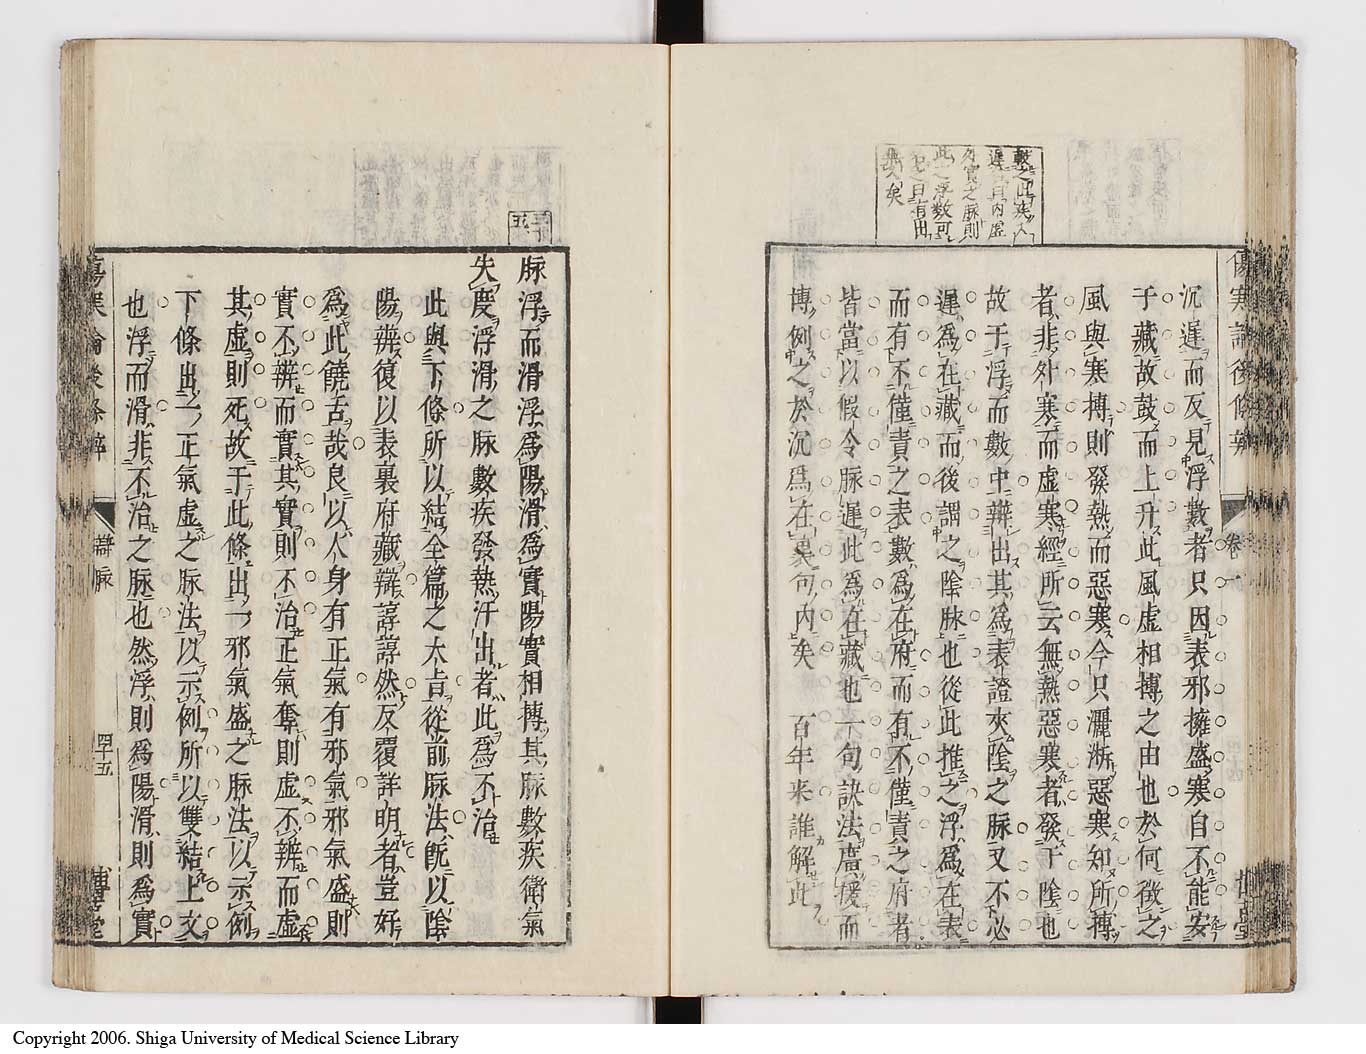 數之此疾人
遲其内虛
外實之脉則
此之浮數可
無矣
傷寒論後條辨
卷一
沉遲而反見浮數者只因表邪擁盛寒自不能安
于藏故鼓而上升此風虛相搏之由也於何徵之
風與寒搏則發熱而惡寒今只灑淅惡寒知所搏
者非外寒而虛寒經所云無熱惡寒者發于陰也
故于浮而數中辨出其爲表證夾陰之脉又不必
遲爲在藏而後謂之陰脉也從此推之浮爲在表
而有不僅責之表數爲在府而有不僅責之府者
皆當以假令脉遲此爲在藏也一句訣法廣援而
博例之於沉爲在裏句内矣 百年来誰解此
三十五
脉浮而滑浮爲陽滑爲實陽實相搏其脉數疾衛氣
失度浮滑之脉數疾發熱汗出者此爲不治
此與下條所以結全篇之大㫖從前脉法既以陰
陽辨復以表裏府藏辯諄諄然反覆詳明者豈好
爲此饒舌哉良以人身有正氣有邪氣邪氣盛則
實不辨而實其實則不治正氣奪則虛不辨而虛
其虛則死故于此條出一邪氣盛之脉法以示例
下條出一正氣虛之脉法以示例所以雙結上文
也浮而滑非不治之脉也然浮則爲陽滑則爲實
傷寒論後條辨
辯脉
四十五
博古堂